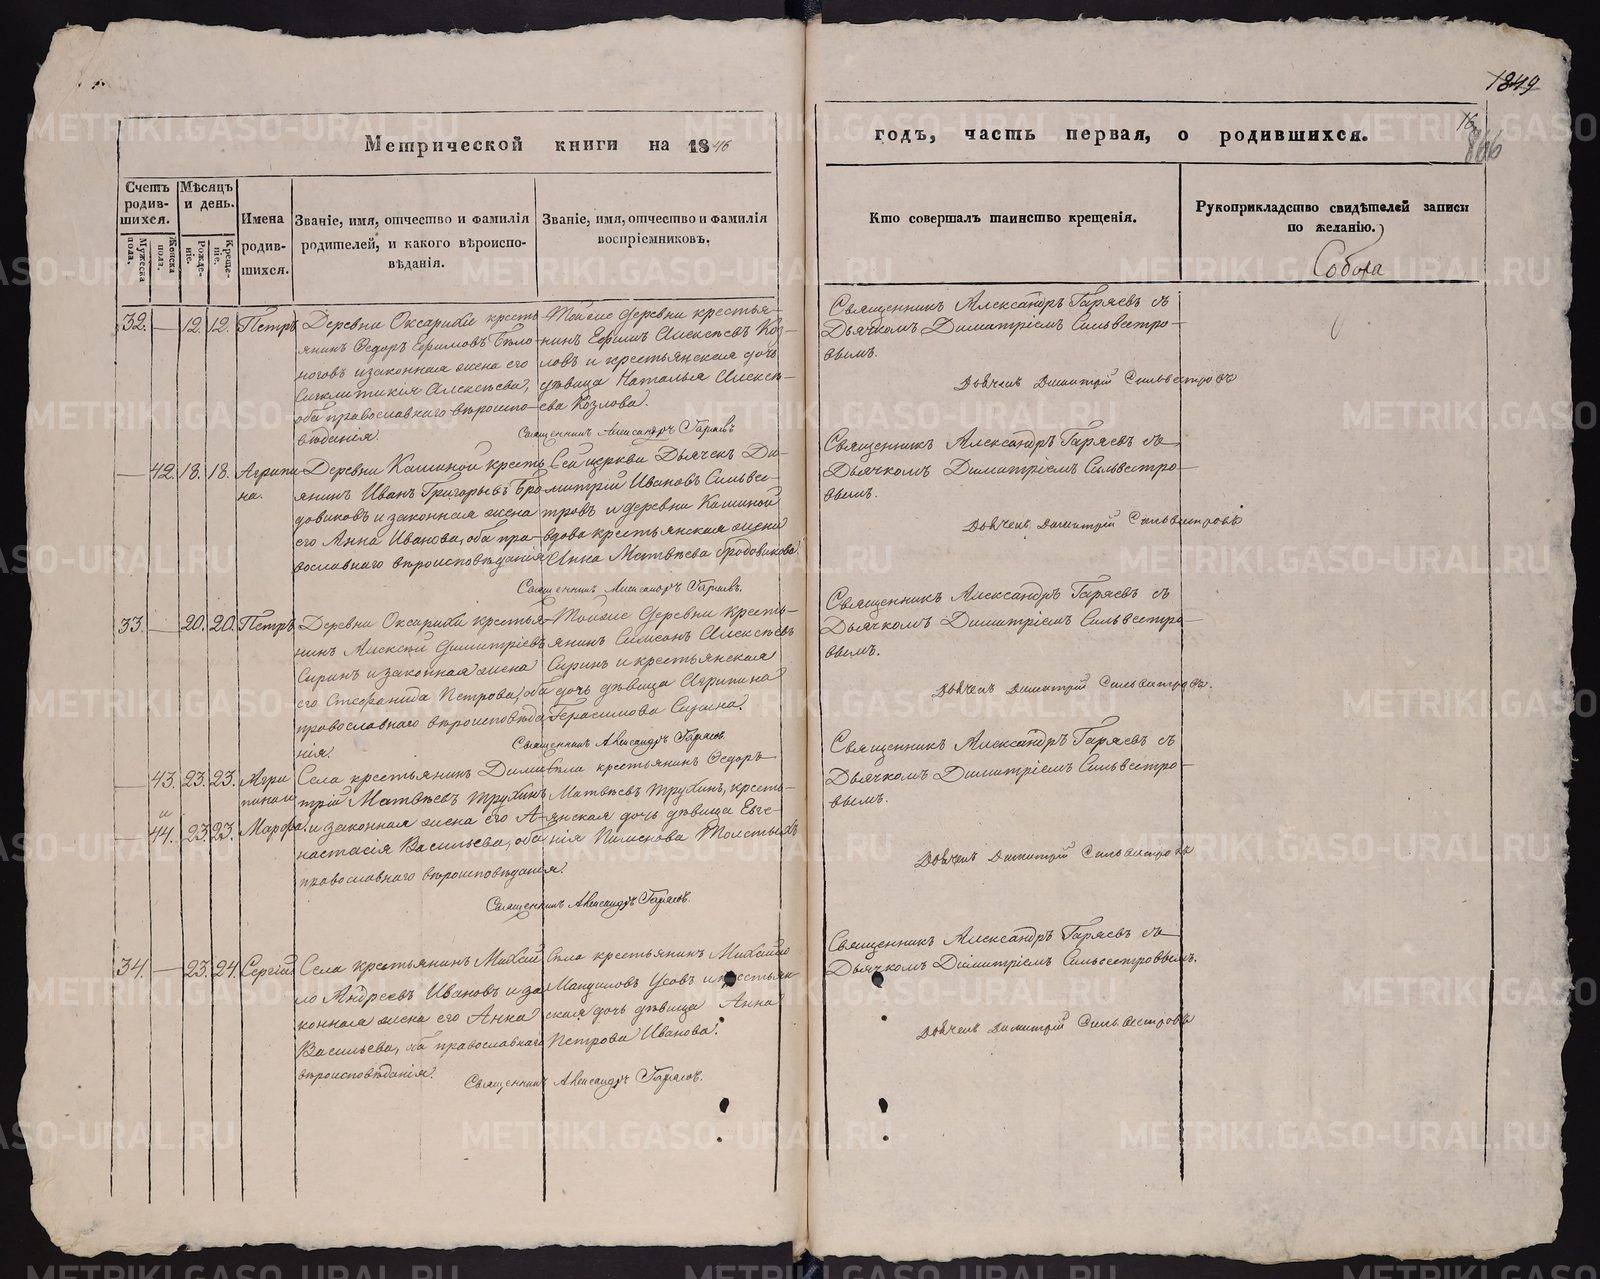 1849
Метрической книги на 1846
годъ, часть первая, о родившихся.
16
866
Счетъ родив-шихся.
Мужеска пола.
Женска пола.
Мѣсяцъ и день.
Рожде-ніе.
Креще-ніе.
Имена родив-шихся.
Званіе, имя, отчество и фамилія
родителей, и какого вѣроиспо-
вѣданія.
Званіе, имя, отчество и фамилія
воспріемниковъ.
Кто совершалъ таинство крещенія.
Рукоприкладство свидѣтелей записи
по желанію.
Собора
32. — 12. 12. Петръ
Деревни Оксарихи кресть-
янинъ Ѳедоръ Ефимовъ Бѣло-
ноговъ и законная жена его
Синклитикія Алексѣева,
оба православнаго вѣроиспо-
вѣданія.
Тойже деревни крестья-
нинъ Ефимъ Алексѣевъ Коз-
ловъ и крестьянская дочь
дѣвица Наталья Алексѣ-
ева Козлова.
Священникъ Александръ Гаряевъ
Священникъ Александръ Гаряевъ съ
Дьячкомъ Димитріемъ Сильвестро-
вымъ.
Дьячекъ Димитрій Сильвестровъ
— 42. 18. 18. Агрипи-
на.
Деревни Кашиной кресть-
янинъ Иванъ Григорьевъ Бро-
довиковъ и законная жена
его Анна Иванова, оба пра-
вославнаго вѣроисповѣданія
Сей церкви Дьячекъ Ди-
митрій Ивановъ Сильвес-
тровъ и деревни Кашиной
вдова крестьянская жена
Анна Матвѣева Бродовикова.
Священникъ Александръ Гаряевъ.
Священникъ Александръ Гаряевъ съ
Дьячкомъ Димитріемъ Сильвестро-
вымъ.
Дьячекъ Димитрій Сильвестровъ
33. — 20. 20. Петръ
Деревни Оксарихи крестья-
нинъ Алексѣй Димитріевъ
Сыринъ и законная жена
его Стефанида Петрова, оба
православнаго вѣроисповѣда-
нія.
Тойже деревни кресть-
янинъ Симеонъ Алексѣевъ
Сыринъ и крестьянская
дочь дѣвица Агрипина
Герасимова Сырина.
Священникъ Александръ Гаряевъ.
Священникъ Александръ Гаряевъ съ
Дьячкомъ Димитріемъ Сильвестро-
вымъ.
Дьячекъ Димитрій Сильвестровъ.
— 43. 23. 23. Агри
пина и
и
— 44. 23. 23. Марфа.
Села крестьянинъ Дими-
трій Матвѣевъ Трухинъ
и законная жена его А-
настасія Васильева, оба
православнаго вѣроисповѣданія.
Села крестьянинъ Ѳедоръ
Матвѣевъ Трухинъ, кресть-
янская дочь дѣвица Евге-
нія Пименова Толстыхъ
Священникъ Александръ Гаряевъ.
Священникъ Александръ Гаряевъ съ
Дьячкомъ Димитріемъ Сильвестро-
вымъ.
Дьячекъ Димитрій Сильвестровъ
34. — 23. 24. Сергій
Села крестьянинъ Михай
ло Андреевъ Ивановъ и за
конная жена его Анна
Васильева, оба православнаго
вѣроисповѣданія.
Села крестьянинъ Михайло
Усовъ и крестьян-
ская дочь дѣвица Анна
Петрова Иванова.
Священникъ Александръ Гаряевъ.
Священникъ Александръ Гаряевъ съ
Дьячкомъ Димитріемъ Сильвестровымъ.
Дьячекъ Димитрій Сильвестровъ
METRIKI.GASO-URAL.RU